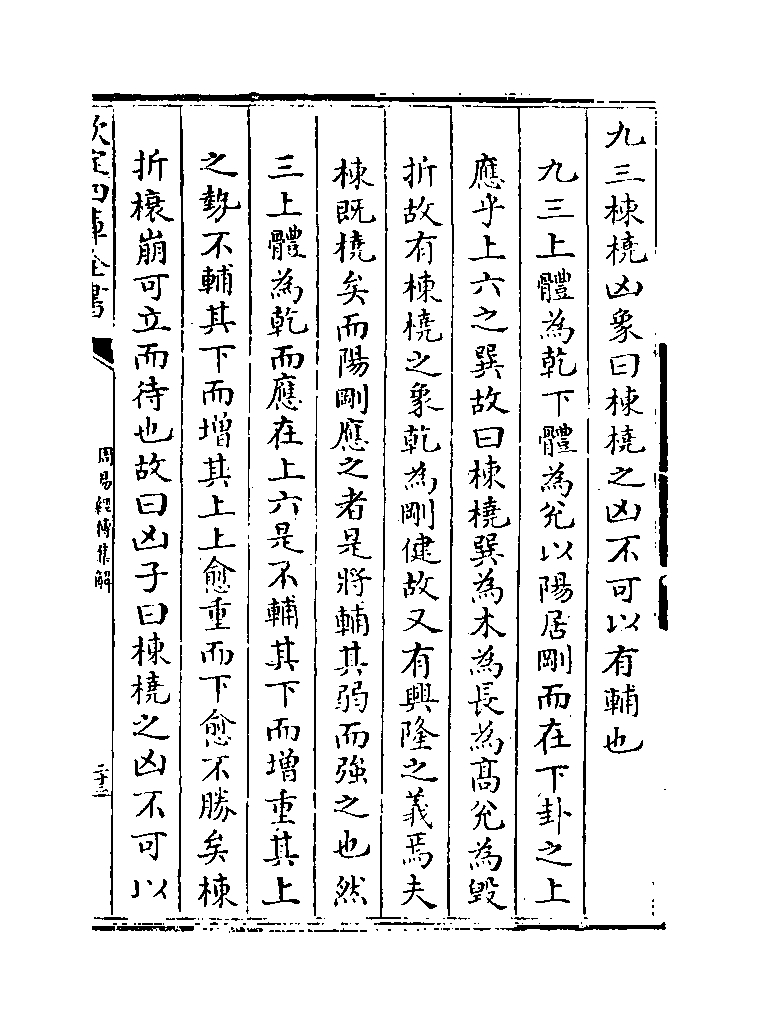 九三棟橈凶象曰棟橈之凶不可以有輔也
九三上體為乾下體為兊以陽居剛而在下卦之上
應乎上六之巽故曰棟橈巽為木為長為髙兊為毁
折故有棟橈之象乾為剛健故又有興隆之義焉夫
棟既橈矣而陽剛應之者是將輔其弱而強之也然
三上體為乾而應在上六是不輔其下而增重其上
之勢不輔其下而增其上上愈重而下愈不勝矣棟
折榱崩可立而待也故曰凶子曰棟橈之凶不可以
欽定四庫全書
周易經傳集解
二十二